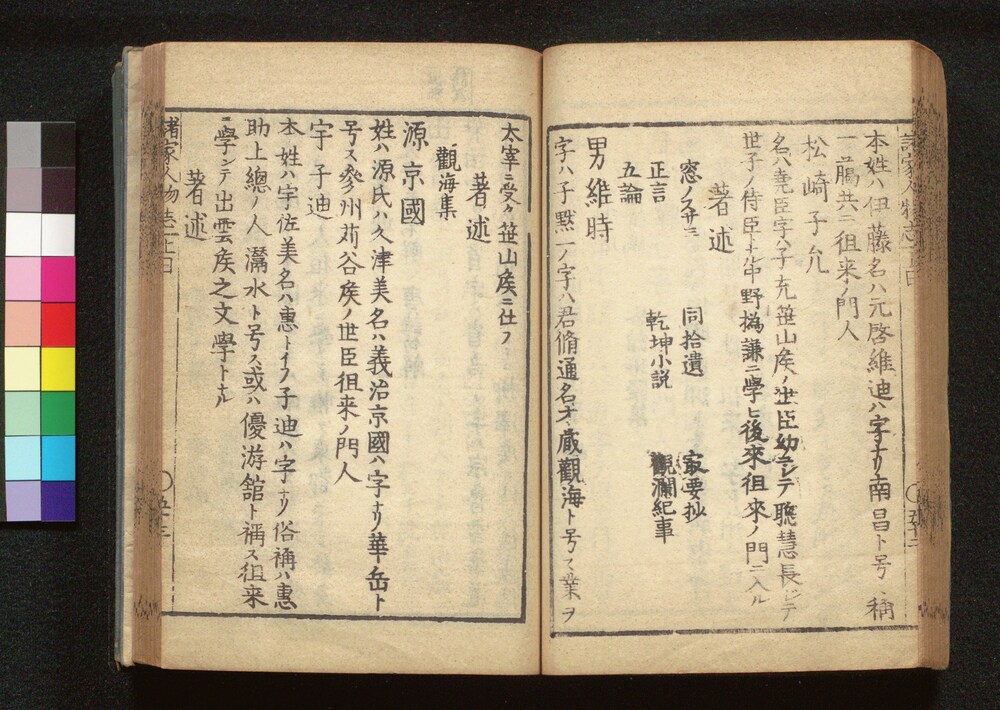 本姓ハ伊藤名ハ元啓維迪ハ字ナリ南昌ト号ス稱
一鵬共ニ徂來ノ門人
松崎子允
名ハ堯臣字ハ子允笹山矦ノ世臣幼ニシテ聰慧長シテ
世子ノ侍臣トナル中野撝謙ニ學ヒ後來徂來ノ門ニ入ル
著述
窓ノスサミ
同拾遺
寂要抄
正言
乾坤小説
觀瀾紀事
五論
男維時
字ハ子默一ノ字ハ君脩通名才藏觀海ト号ス業ヲ
太宰ニ受ケ笹山矦ニ仕フ
著述
觀海集
源京國
姓ハ源氏ハ久津美名ハ義治京國ハ字ナリ華岳ト
号ス參州苅谷矦ノ世臣徂来ノ門人
宇子迪
本姓ハ宇佐美名ハ惠ト云フ子迪ハ字ナリ俗稱ハ惠
助上總ノ人灊水ト号ス或ハ優游館ト稱ス徂来
ニ學ンテ出雲矦之文學トナル
著述
諸家人物志上